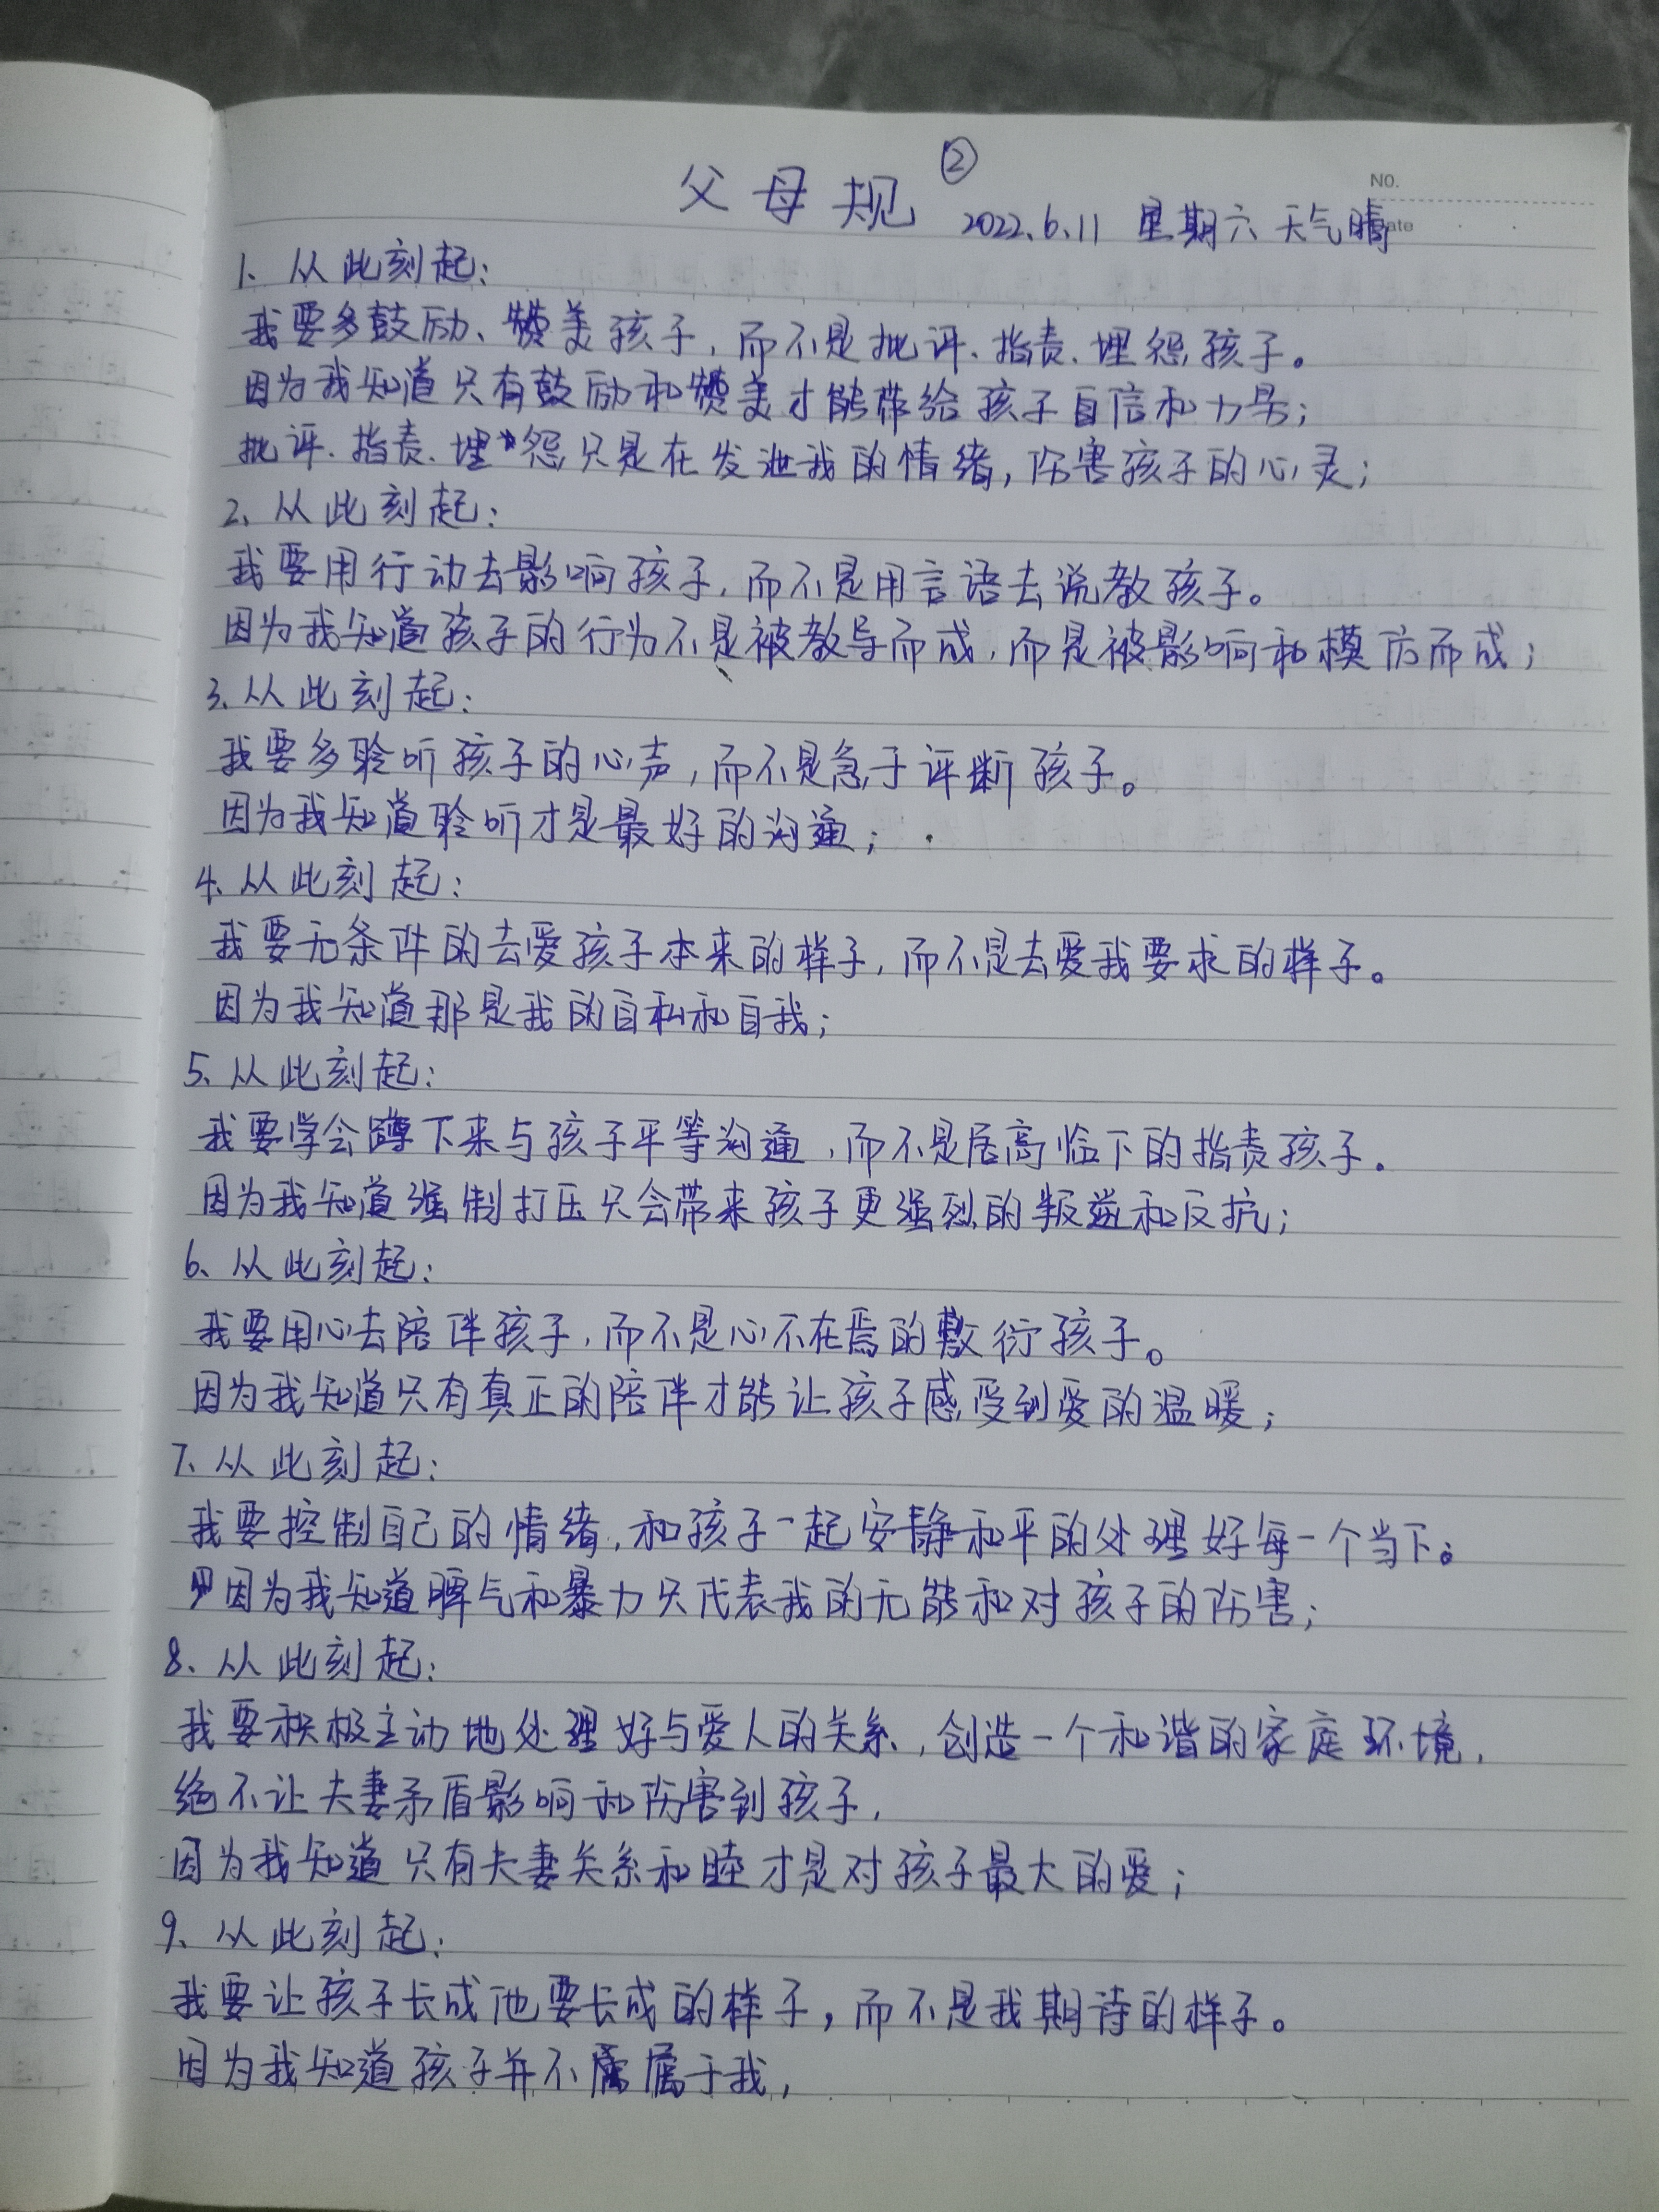 ②
父母规
NO.
2022.6.11 星期六 天气晴
1、从此刻起：
我要多鼓励、赞美孩子，而不是批评、指责、埋怨孩子。
因为我知道只有鼓励和赞美才能带给孩子自信和力量；
批评、指责、埋怨只是在发泄我的情绪，伤害孩子的心灵；
2、从此刻起：
我要用行动去影响孩子，而不是用言语去说教孩子。
因为我知道孩子的行为不是被教导而成，而是被影响和模仿而成；
3、从此刻起：
我要多聆听孩子的心声，而不是急于评断孩子。
因为我知道聆听才是最好的沟通；
4、从此刻起：
我要无条件的去爱孩子本来的样子，而不是去爱我要求的样子。
因为我知道那是我的自私和自我；
5、从此刻起：
我要学会蹲下来与孩子平等沟通，而不是居高临下的指责孩子.
因为我知道强制打压只会带来孩子更强烈的叛逆和反抗；
6、从此刻起：
我要用心去陪伴孩子，而不是心不在焉的敷衍孩子。
因为我知道只有真正的陪伴才能让孩子感受到爱的温暖；
7、从此刻起：
我要控制自己的情绪，和孩子一起安静和平的处理好每一个当下。
因为我知道脾气和暴力只代表我的无能和对孩子的伤害；
8、从此刻起：
我要积极主动地处理好与爱人的关系，创造一个和谐的家庭环境，
绝不让夫妻矛盾影响和伤害到孩子，
因为我知道只有夫妻关系和睦才是对孩子最大的爱；
9、从此刻起：
我要让孩子长成他要长成的样子，而不是我期待的样子。
因为我知道孩子并不属于我，